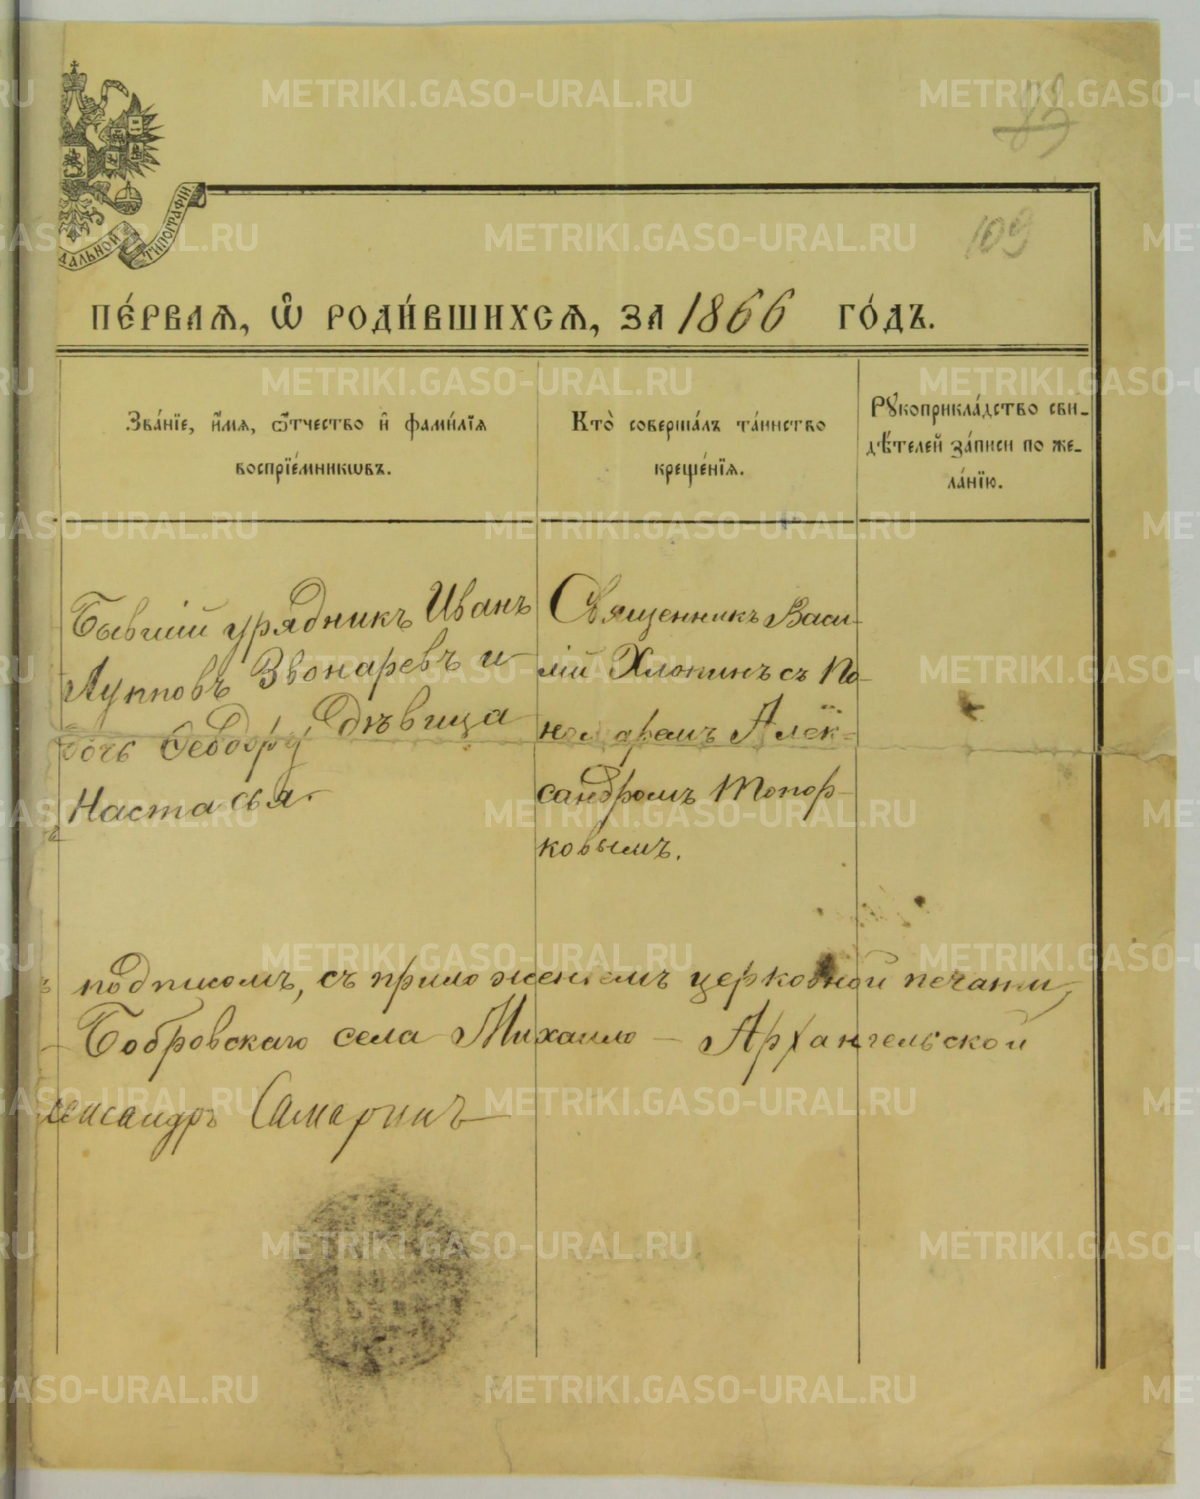 109
ДАЛЬНОЙ ТИПОГРАФІИ
ПЕ́РВАѦ, Ѿ РОДИ́ВШИХСѦ, ЗА 1866 ГО́ДЪ.
Зва́нїе, и҆́мѧ, ѻ҆́тчество и҆ фами́лїѧ
воспрїе́мникѡвъ.
Кто̀ соверша́лъ та́инство
креще́нїѧ.
Рꙋкоприкла́дство сви-
дѣ́телей за́писи по же-
ла́нїю.
Бывшій урядникъ Иванъ
Лупповъ Звонаревъ и
дочь Ѳеодору дѣвица
Настасья.
Священникъ Васи-
лій Хлопинъ съ По-
номаремъ Алек-
сандромъ Топор-
ковымъ.
подписомъ, съ приложеніемъ церковной печати,
Бобровскаго села Михаило - Архангельской
лександръ Самаринъ
METRIKI.GASO-URAL.RU